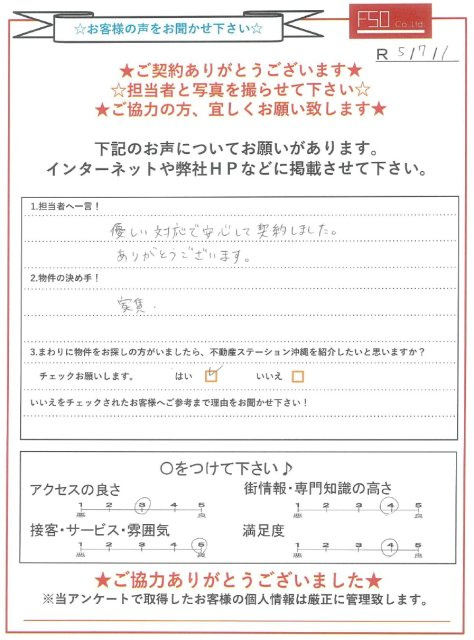 ☆お客様の声をお聞かせ下さい☆
FSO
Co.Ltd.
R 5/7/1
★ご契約ありがとうございます★
☆担当者と写真を撮らせて下さい☆
★ご協力の方、宜しくお願い致します★
下記のお声についてお願いがあります。
インターネットや弊社ＨＰなどに掲載させて下さい。
1.担当者へ一言！
優しい対応で安心して契約しました。
ありがとうございます。
2.物件の決め手！
家賃.
3.まわりに物件をお探しの方がいましたら、不動産ステーション沖縄を紹介したいと思いますか？
チェックお願いします。 はい ☑ いいえ □
いいえをチェックされたお客様へご参考まで理由をお聞かせ下さい！
〇をつけて下さい♪
アクセスの良さ 街情報・専門知識の高さ
1 2 3 4 5 1 2 3 4 5
悪 良 悪 良
接客・サービス・雰囲気 満足度
1 2 3 4 5 1 2 3 4 5
悪 良 悪 良
★ご協力ありがとうございました★
※当アンケートで取得したお客様の個人情報は厳正に管理致します。